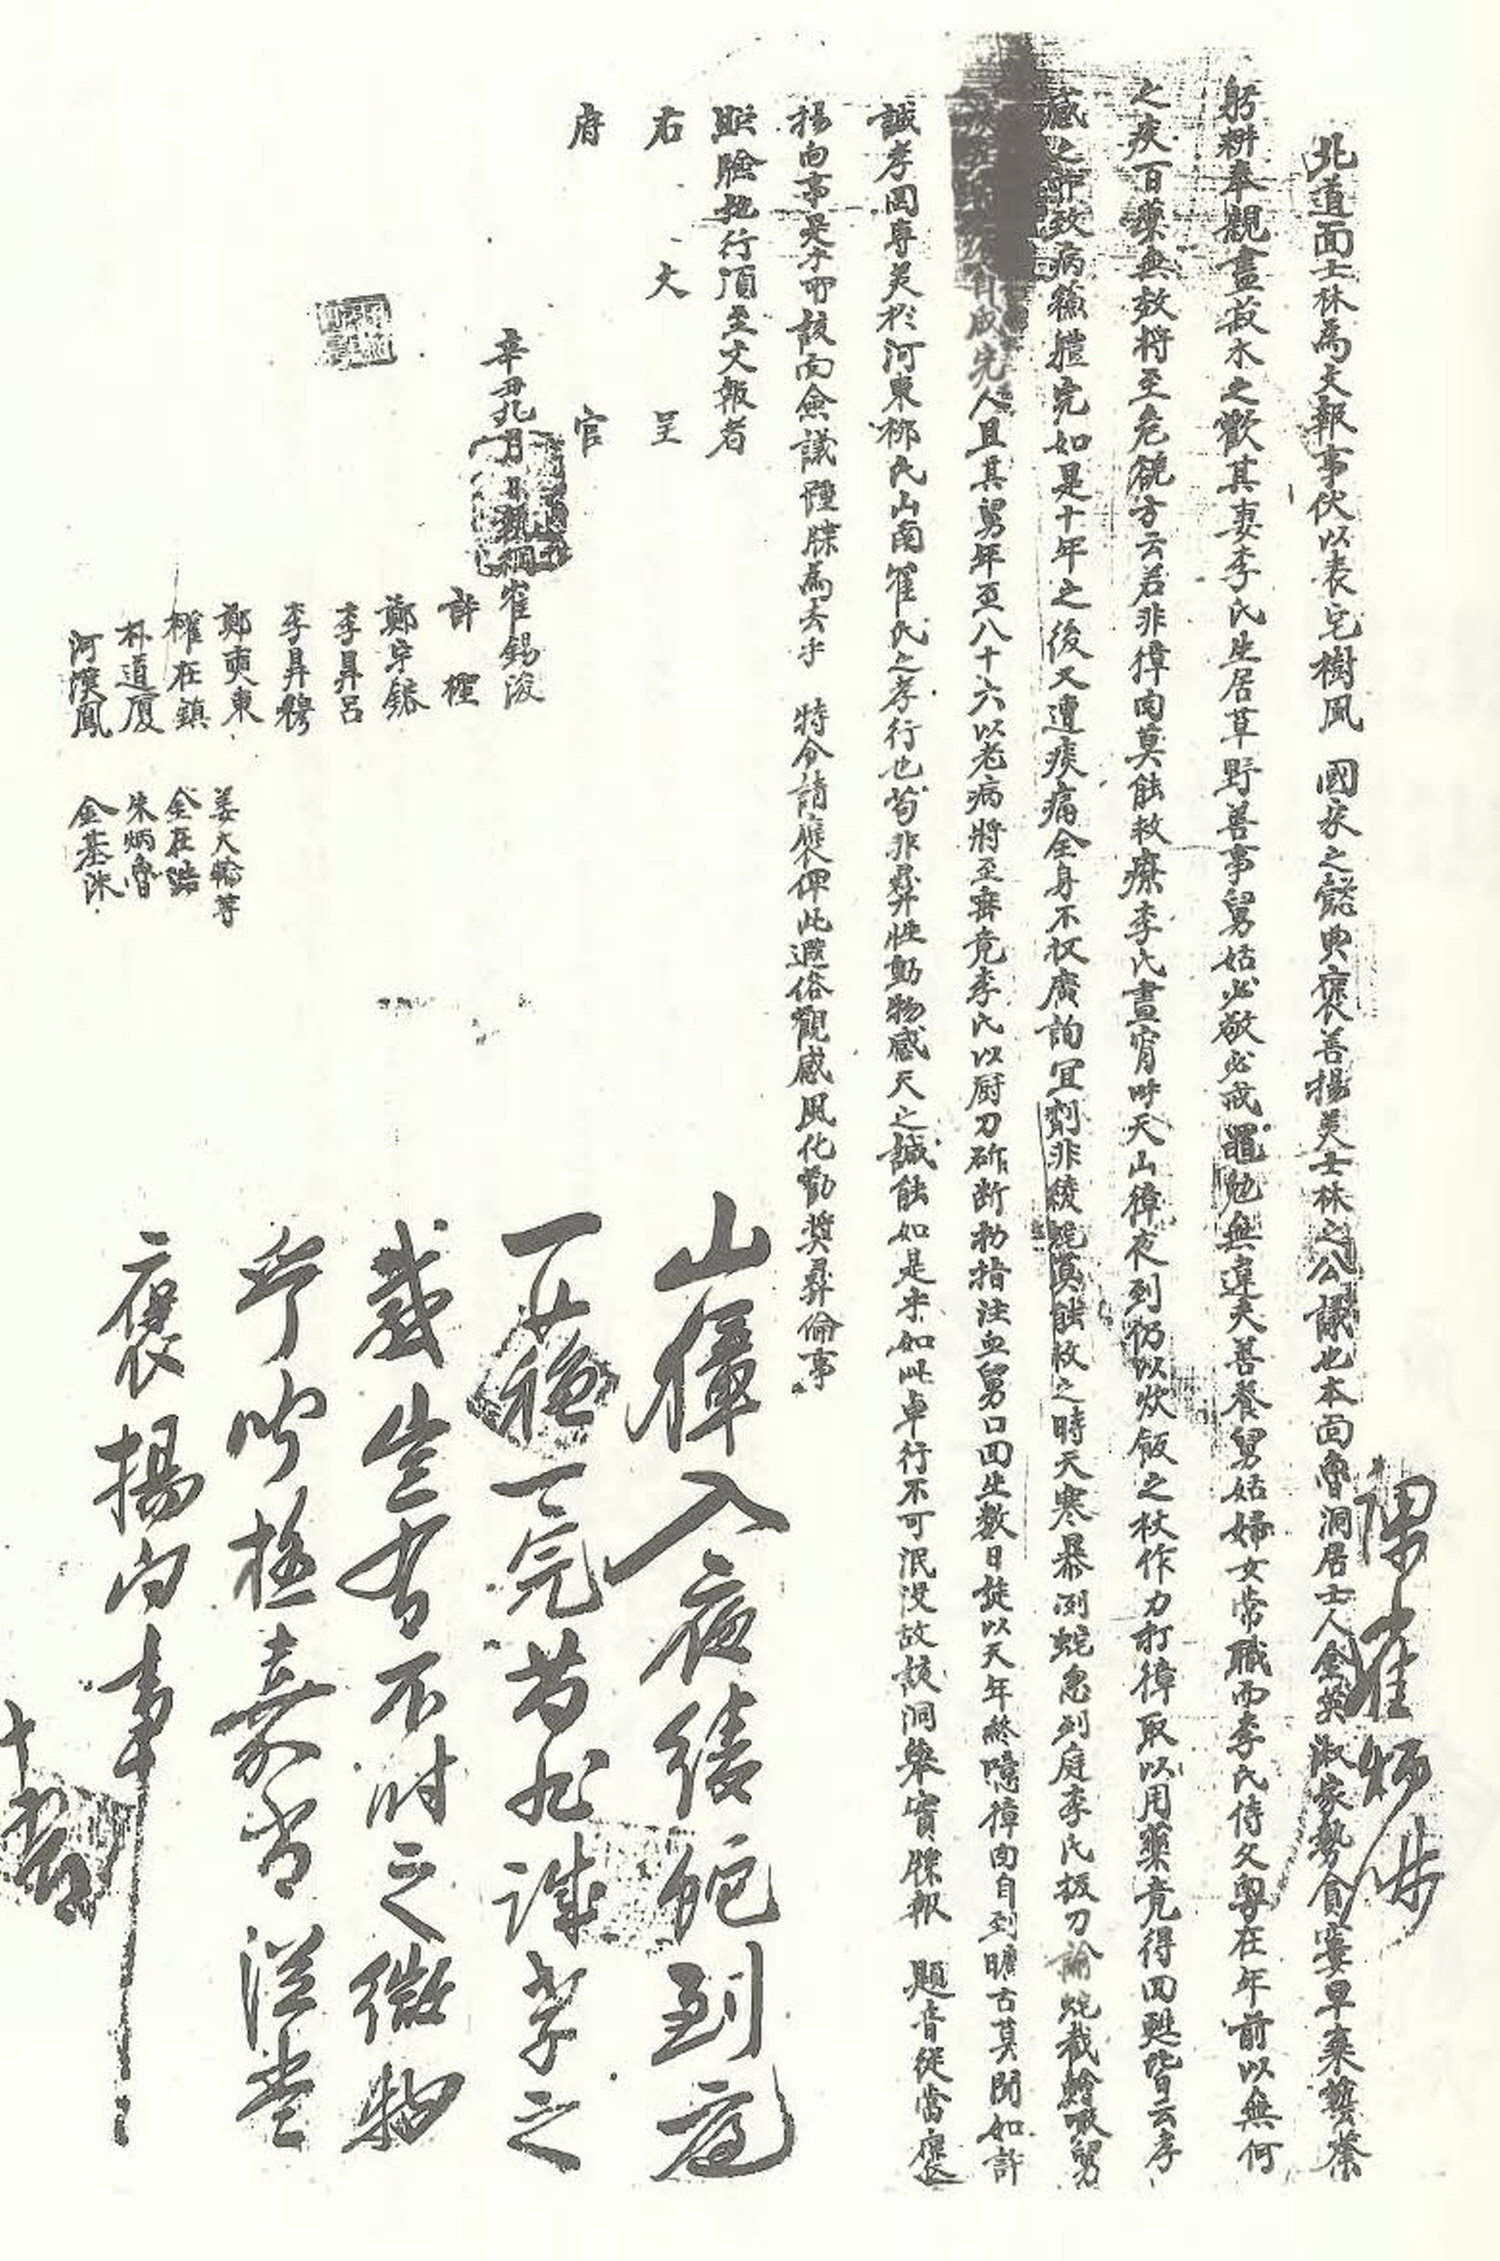 北道面士林爲文報事伏以表宅樹風 國家之懿典褒善揚美士林之公議也本面魯洞居士人金英淑家勢貧寠早棄藝業
躬耕奉親盡菽水之歡其妻李氏生居草野善事舅姑必敬必戒黽勉無違夫善養舅姑婦女常職而李氏侍父粤在年前以無何
之疾百藥無效將至危境方云若非獐肉莫能救療李氏晝宵呼天山獐夜到仍以炊飯之杖作力打獐取以用藥竟得回甦皆云孝
感之所致病復軆完如是十年之後又遭痰痛全身不收廣詢宜劑非綾蛇莫能救之時天寒暴冽蛇忽到庭李氏扱刀斷蛇裁膾哌舅
完人且其舅年至八十六以老病將至寢竟李氏以厨刀斫断拗指注血舅口回生數日旋以天年終噫獐肉自到曠古莫聞如許
誠孝罔專美於河東柳氏山南崔氏之孝行也苟非彛性動物感天之誠能如是乎如此卓行不可泯没故該洞擧實牒報 題音從當褒
揚向事是乎所該面僉議軆牒爲去乎 特令請褒俾此遐俗觀感風化勸奬彛倫事
照驗施行須至文報者
右 文 呈
府 官
辛丑九月 日執綱崔錫浚
許𣞁
鄭宇鎔
李昇呂
李昇穆
鄭奭東 姜大翰等
權在鎮 金在浩
朴道厦 朱炳魯
河漢鳳 金基洙
山獐入夜綾蛇到庭
一甦一完苟非誠孝之
感豈有不时之微物
乎聞極嘉尙從當
褒揚向事
十三